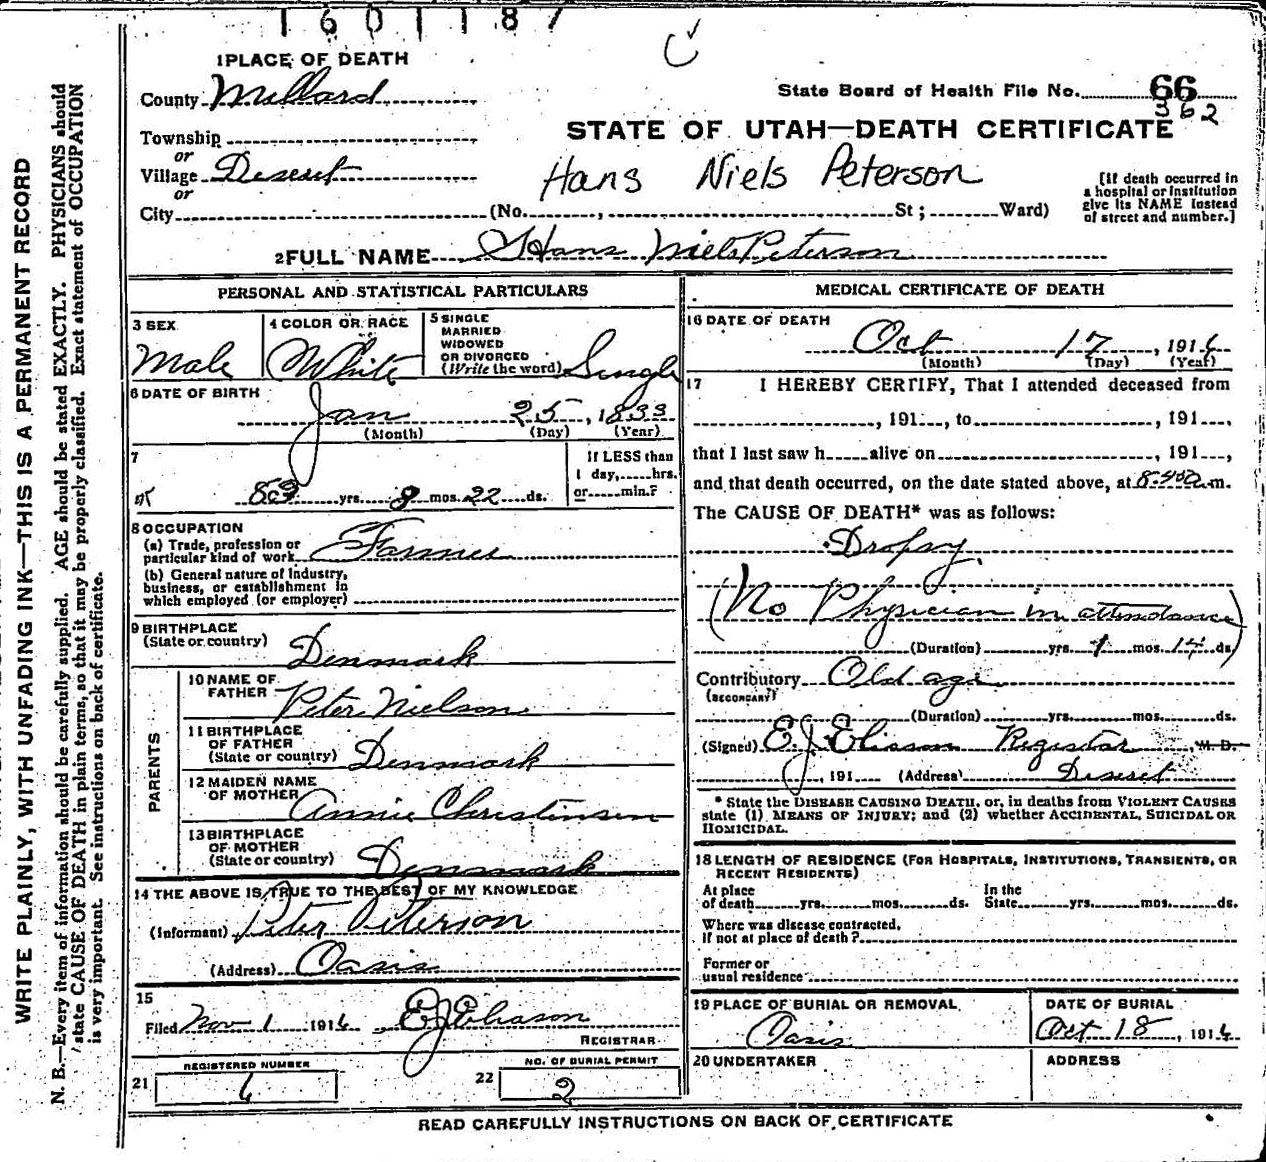 1601187
1 PLACE OF DEATH
County Millard
State Board of Health File No. 66
362
Township
or
Village Deseret
or
City (No. , St ; Ward)
STATE OF UTAH—DEATH CERTIFICATE
Hans Niels Peterson
[If death occurred in
a hospital or institution
give its NAME instead
of street and number.]
2 FULL NAME Hans Niels Peterson
PERSONAL AND STATISTICAL PARTICULARS
3 SEX
Male
4 COLOR OR RACE
White
5 SINGLE
MARRIED
WIDOWED
OR DIVORCED
(Write the word) Single
6 DATE OF BIRTH
Jan 25, 1833
(Month) (Day) (Year)
7
83 yrs. 8 mos. 22 ds.
If LESS than
1 day, hrs.
or min.?
8 OCCUPATION
(a) Trade, profession or
particular kind of work Farmer
(b) General nature of Industry,
business, or establishment in
which employed (or employer)
9 BIRTHPLACE
(State or country) Denmark
PARENTS
10 NAME OF
FATHER Peter Nielson
11 BIRTHPLACE
OF FATHER
(State or country) Denmark
12 MAIDEN NAME
OF MOTHER Annie Christinsen
13 BIRTHPLACE
OF MOTHER
(State or country) Denmark
14 THE ABOVE IS TRUE TO THE BEST OF MY KNOWLEDGE
(Informant) Peter Peterson
(Address) Oasis
15
Filed Nov 1 1916 E J Eliason
REGISTRAR
REGISTERED NUMBER
21 6
NO. OF BURIAL PERMIT
22 2
MEDICAL CERTIFICATE OF DEATH
16 DATE OF DEATH
Oct 17, 1916
(Month) (Day) (Year)
17 I HEREBY CERTIFY, That I attended deceased from
, 191 , to , 191 ,
that I last saw h alive on , 191 ,
and that death occurred, on the date stated above, at m.
The CAUSE OF DEATH* was as follows:
Dropsy
(No Physician in attendance)
(Duration) yrs. 1 mos. 14 ds.
Contributory Old age
(SECONDARY)
(Duration) yrs. mos. ds.
(Signed) E. J. Eliason Registar, M. D.
, 191 (Address) Deseret
* State the DISEASE CAUSING DEATH, or, in deaths from VIOLENT CAUSES
state (1) MEANS OF INJURY; and (2) whether ACCIDENTAL, SUICIDAL OR
HOMICIDAL.
18 LENGTH OF RESIDENCE (FOR HOSPITALS, INSTITUTIONS, TRANSIENTS, OR
RECENT RESIDENTS)
At place
of death yrs. mos. ds.
In the
State yrs. mos. ds.
Where was disease contracted,
if not at place of death?
Former or
usual residence
19 PLACE OF BURIAL OR REMOVAL
Oasis
DATE OF BURIAL
Oct 18, 1916
20 UNDERTAKER
ADDRESS
READ CAREFULLY INSTRUCTIONS ON BACK OF CERTIFICATE
WRITE PLAINLY, WITH UNFADING INK—THIS IS A PERMANENT RECORD
N. B.—Every item of information should be carefully supplied. AGE should be stated EXACTLY. PHYSICIANS should
state CAUSE OF DEATH in plain terms, so that it may be properly classified. Exact statement of OCCUPATION
is very important. See instructions on back of certificate.